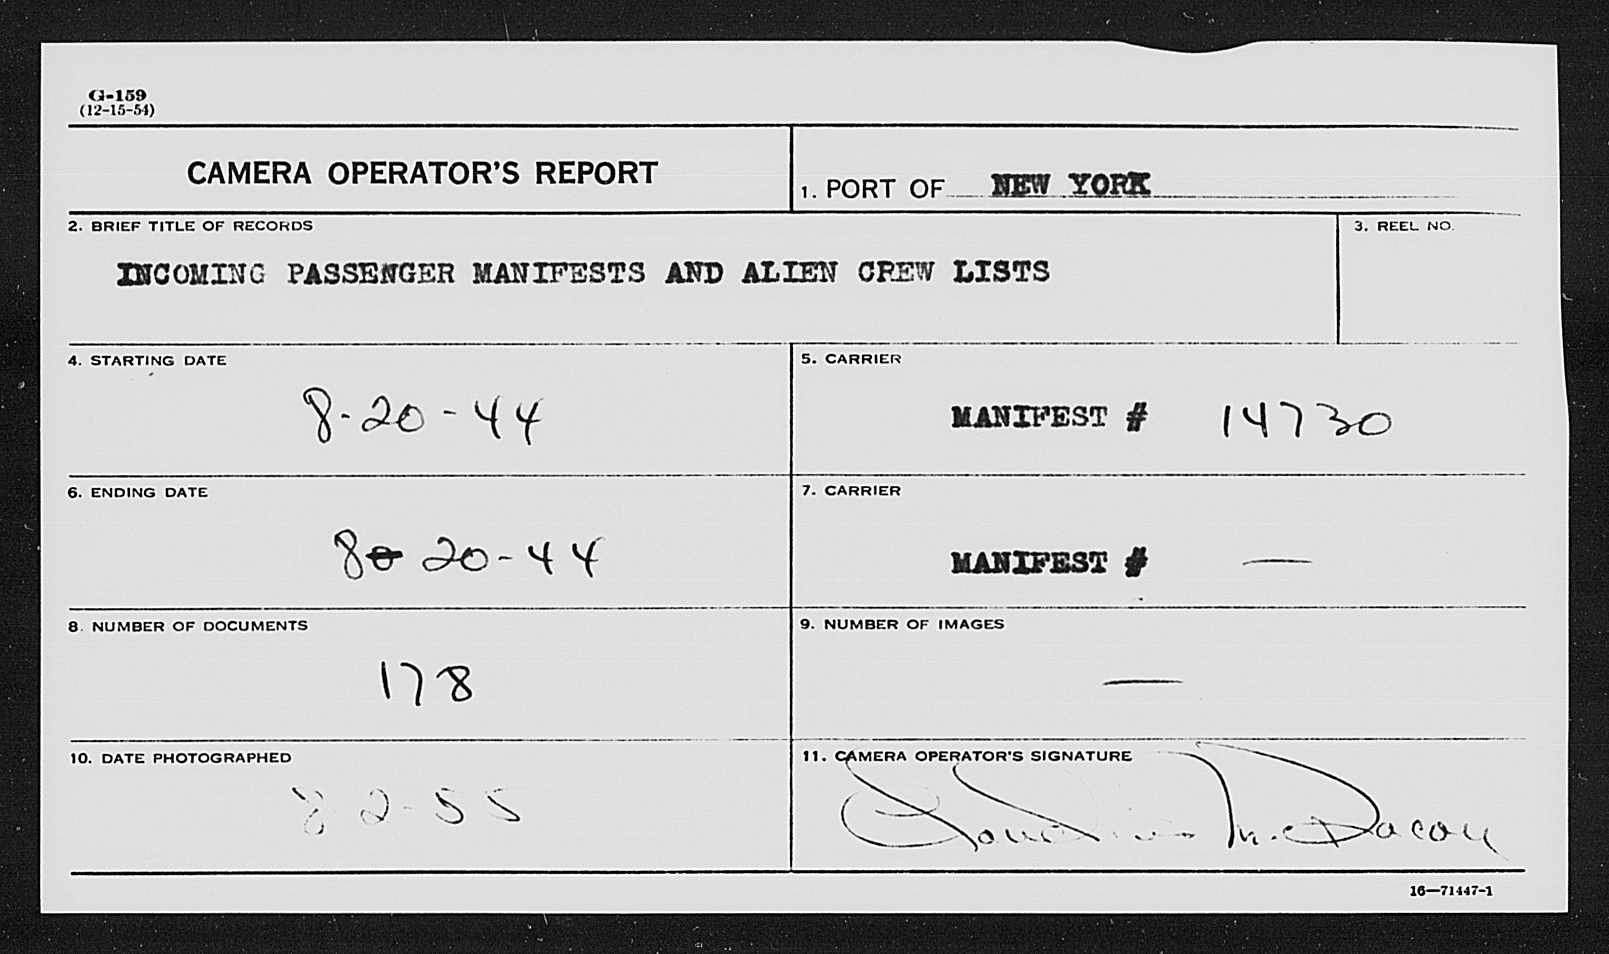 G-159
(12-15-54)
CAMERA OPERATOR'S REPORT
1. PORT OF NEW YORK
2. BRIEF TITLE OF RECORDS
3. REEL NO.
INCOMING PASSENGER MANIFESTS AND ALIEN CREW LISTS
4. STARTING DATE
5. CARRIER
8-20-44
MANIFEST # 14730
6. ENDING DATE
7. CARRIER
8 20-44
MANIFEST # —
8. NUMBER OF DOCUMENTS
9. NUMBER OF IMAGES
178
—
10. DATE PHOTOGRAPHED
11. CAMERA OPERATOR'S SIGNATURE
8 2-55
16—71447-1